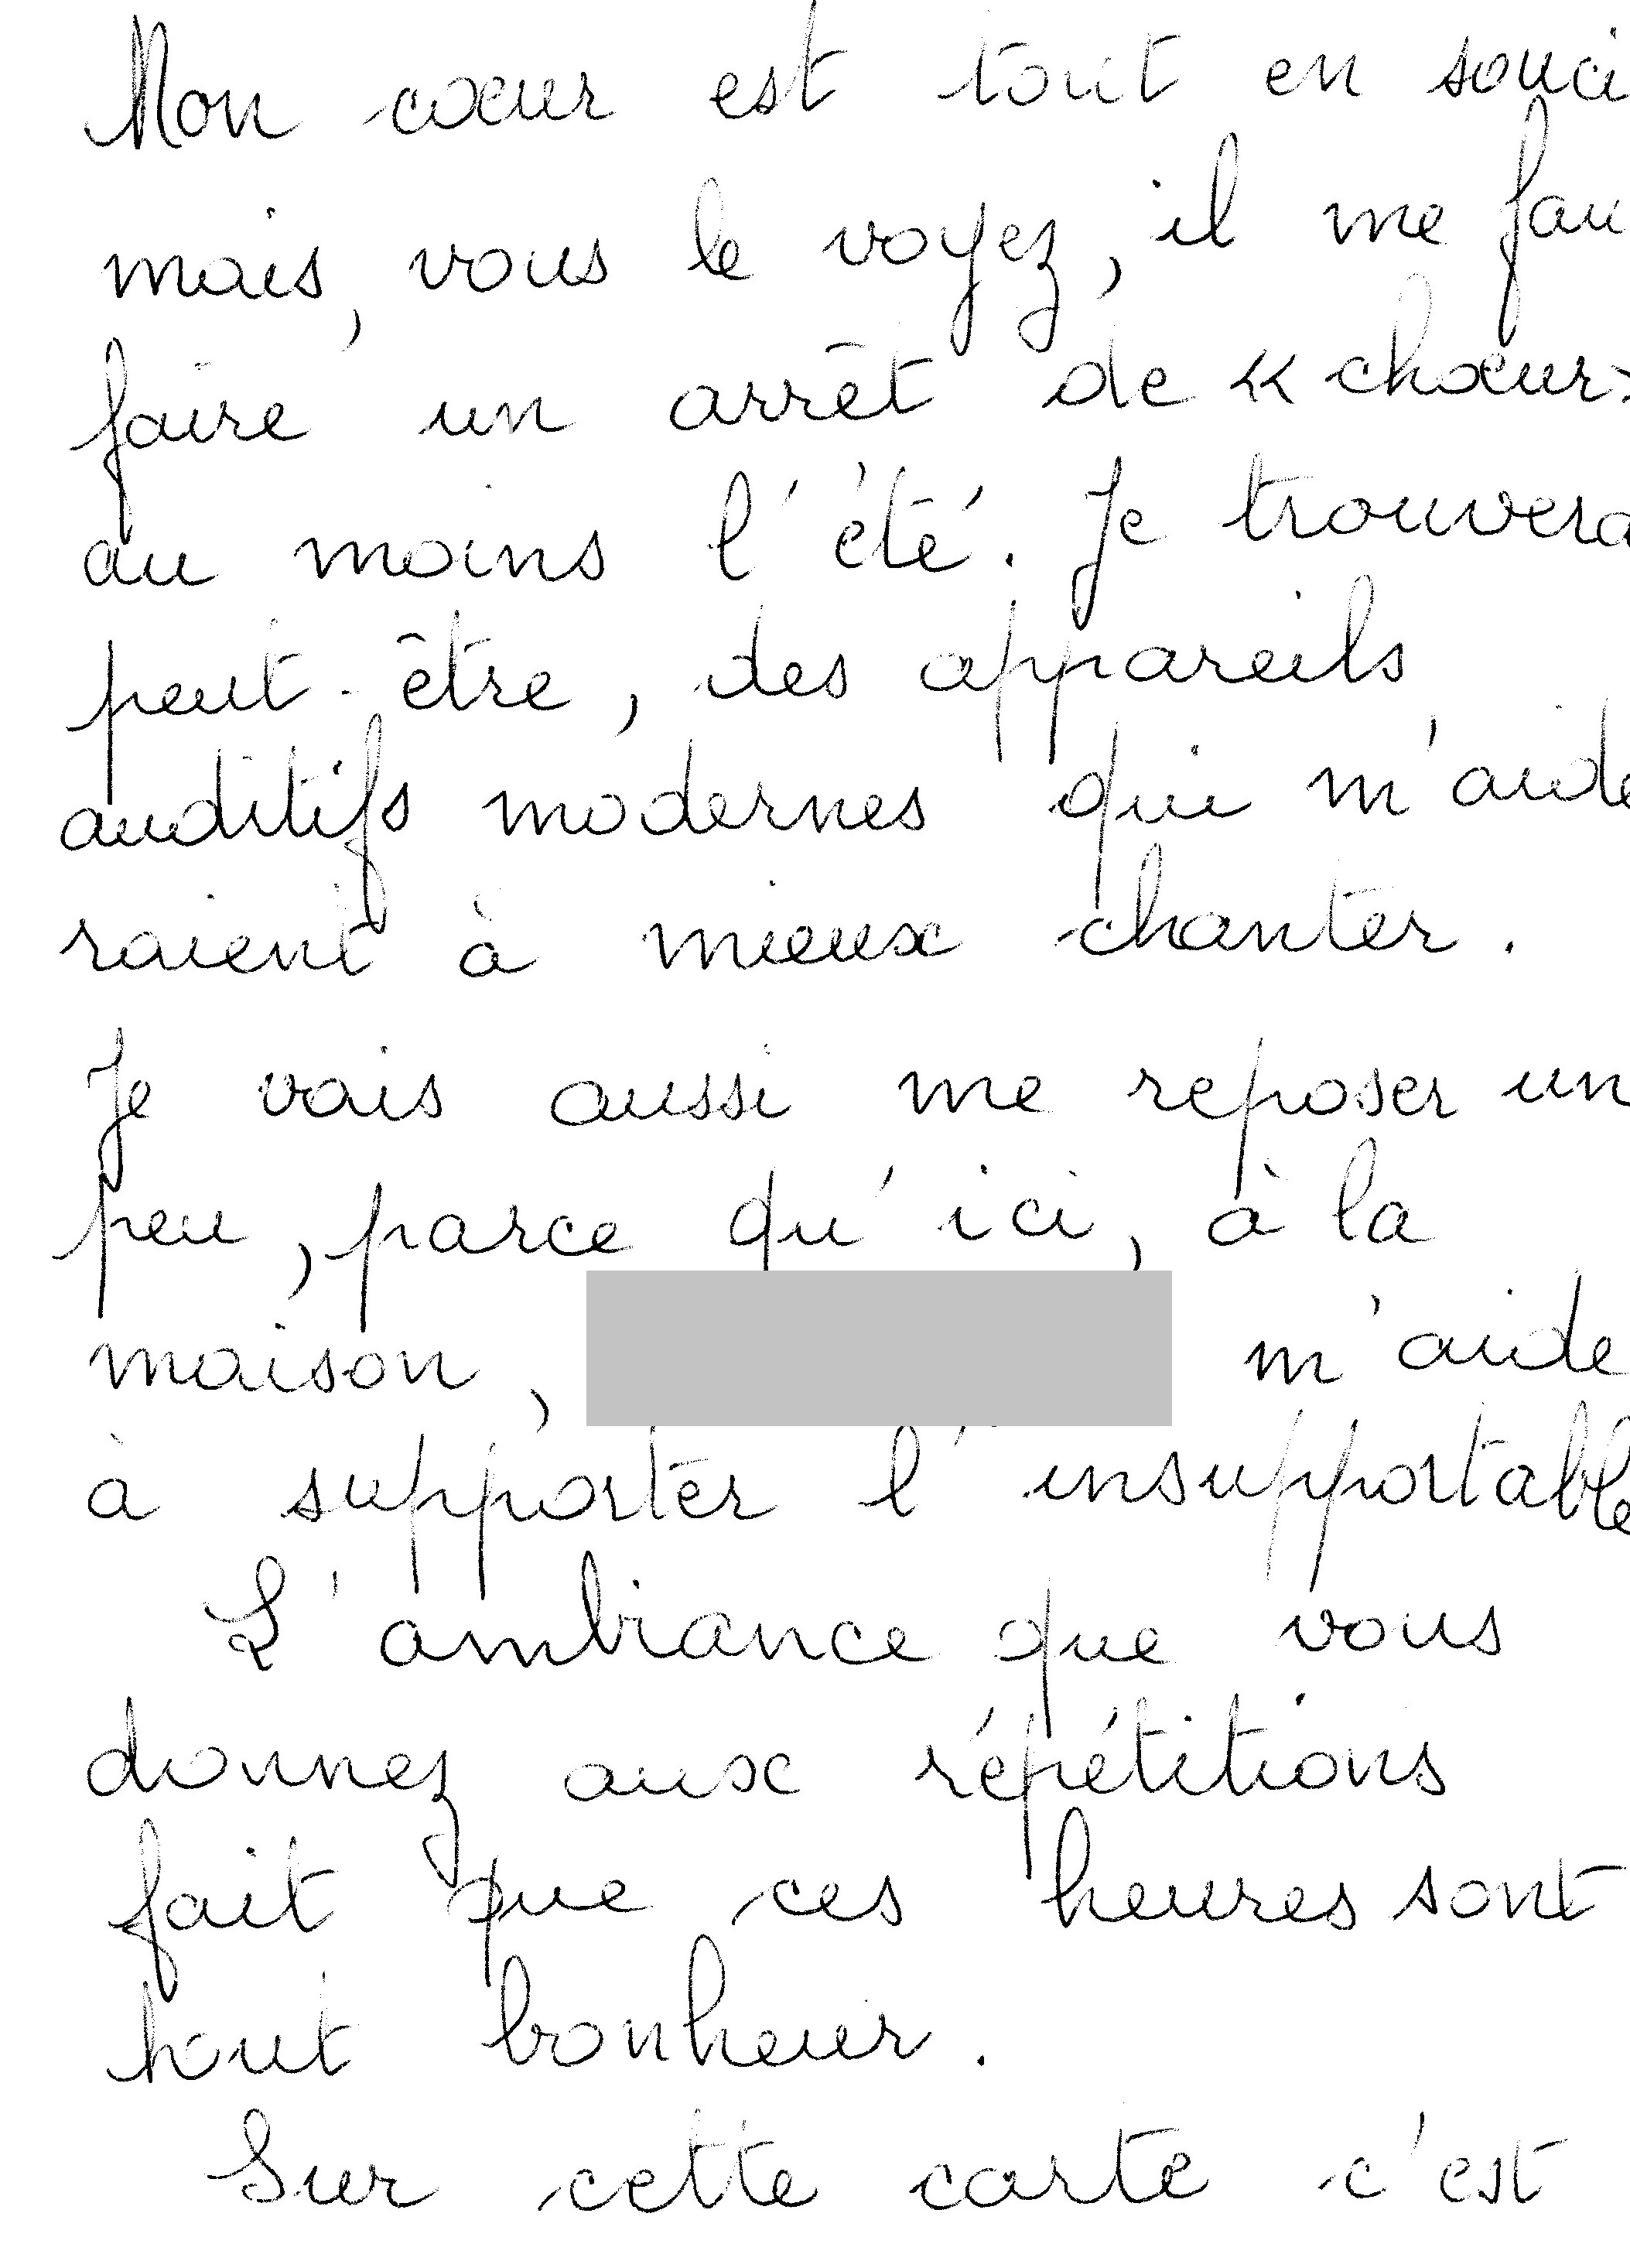 Mon cœur est tout en souci
mais, vous le voyez, il me fau
faire un arrêt de « chœur»
au moins l'été. Je trouvera
peut-être, des appareils
auditifs modernes qui m'aide
raient à mieux chanter.
Je vais aussi me reposer un
peu, parce qu'ici, à la
maison, m'aide
à supporter l'insupportable
L'ambiance que vous
donnez aux répétitions
fait que ces heures sont
tout bonheur.
Sur cette carte c'est